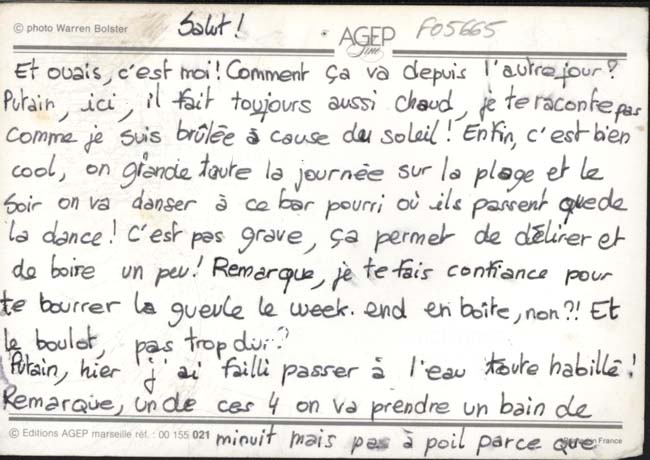 © photo Warren Bolster
Salut !
AGEP
Line
F05665
Et ouais, c'est moi ! Comment ça va depuis l'autre jour ?
Putain, ici, il fait toujours aussi chaud, je te raconte pas
comme je suis brûlée à cause du soleil ! Enfin, c'est bien
cool, on glande toute la journée sur la plage et le
soir on va danser à ce bar pourri où ils passent que de
la dance ! C'est pas grave, ça permet de délirer et
de boire un peu ! Remarque, je te fais confiance pour
te bourrer la gueule le week-end en boîte, non ?! Et
le boulot, pas trop dur ?
Putain, hier j'ai failli passer à l'eau toute habillé !
Remarque, un de ces 4 on va prendre un bain de
© Editions AGEP marseille réf. : 00 155 021
minuit mais pas à poil parce que
France